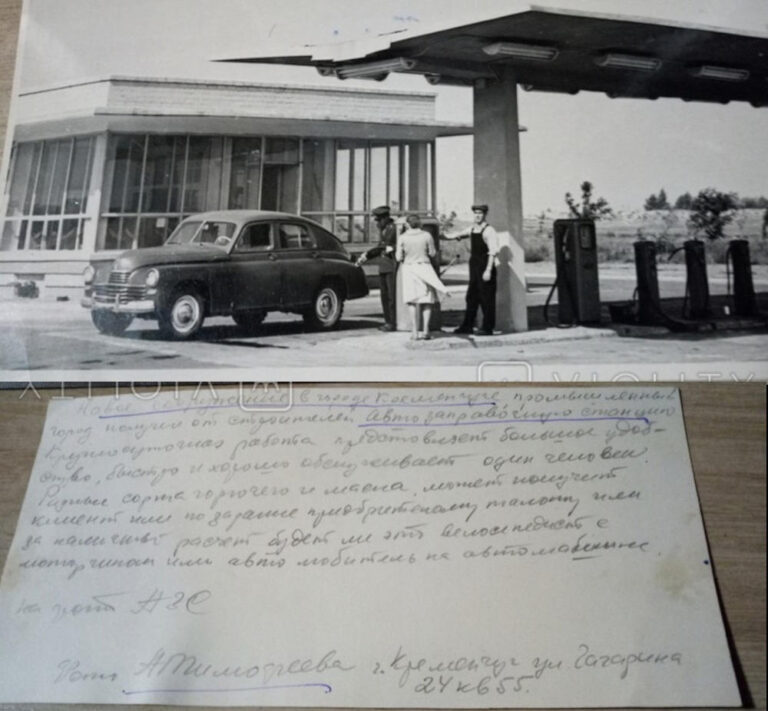 Новое сооружение в городе Кременчуге, промышленный
город получил от строителей Автозаправочную станцию
Круглосуточная работа предоставляет большое удоб-
ство, быстро и хорошо обслуживает один человек.
Разные сорта горючего и масла может получит
клиент или по заранее приобретеному талону или
за наличный расчет будет ли это велосипедист с
моторчиком или авто любитель на автомашине.
На фото АЗС
Фото А Тимофеева г. Кременчуг ул Гагарина
24 кв 55.
VIOLITY
VIOLITY